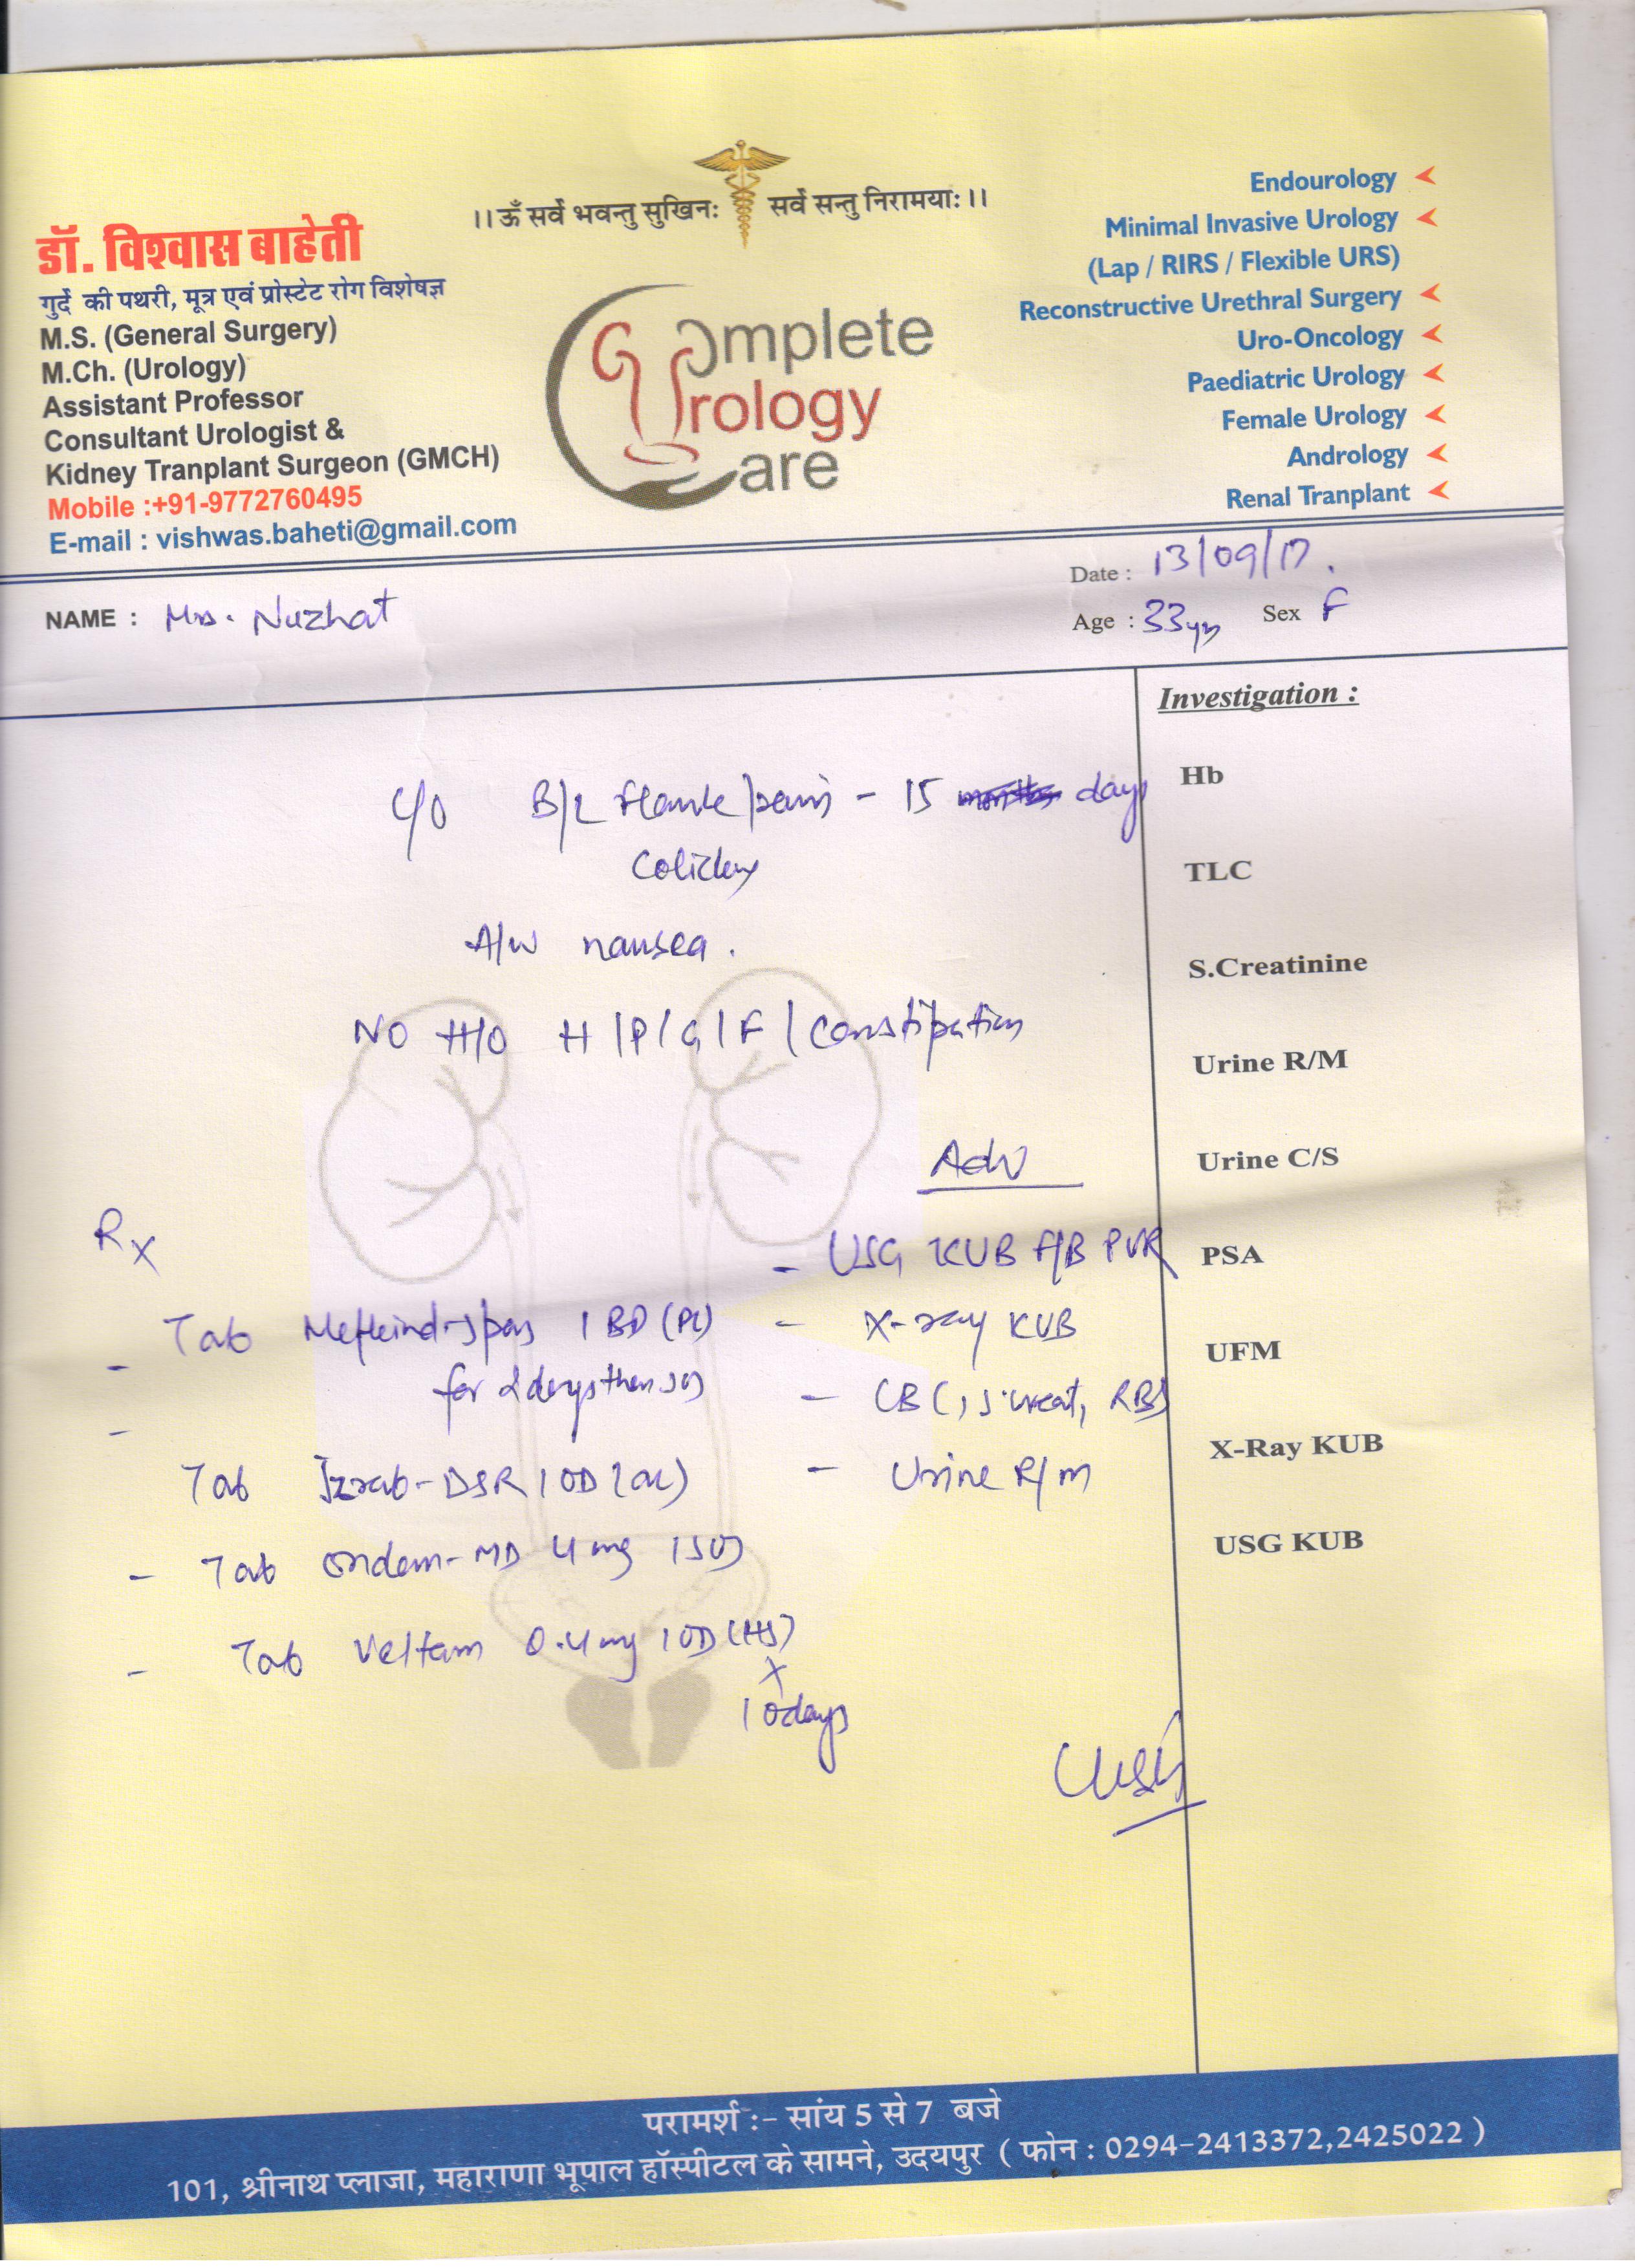 ।। ॐ सर्वे भवन्तु सुखिनः सर्वे सन्तु निरामयाः ।।
डॉ. विश्वास बाहेती
गुर्दे की पथरी, मूत्र एवं प्रोस्टेट रोग विशेषज्ञ
M.S. (General Surgery)
M.Ch. (Urology)
Assistant Professor
Consultant Urologist &
Kidney Tranplant Surgeon (GMCH)
Mobile :+91-9772760495
E-mail : vishwas.baheti@gmail.com
Complete
Urology
Care
Endourology
Minimal Invasive Urology
(Lap / RIRS / Flexible URS)
Reconstructive Urethral Surgery
Uro-Oncology
Paediatric Urology
Female Urology
Andrology
Renal Tranplant
Date : 13/09/17.
NAME : Mrs. Nuzhat
Age : 33yrs Sex F
C/O B/L flank pain - 15 days
Colicky
A/W nausea.
NO H/O H/P/G/F/ Constipation
Adv
- USG KUB F/B PVR
- X-ray KUB
- CBC, S. creat, RBS
- Urine R/M
Rx
- Tab Meftkind-spas 1 BD (PC)
for 2 days then SOS
- Tab Izrab-DSR 1 OD (AC)
- Tab Ondem-MD 4 mg 1 SOS
- Tab Veltam 0.4 mg 1 OD (HS)
x
10 days
Investigation :
Hb
TLC
S.Creatinine
Urine R/M
Urine C/S
PSA
UFM
X-Ray KUB
USG KUB
परामर्श :- सांय 5 से 7 बजे
101, श्रीनाथ प्लाजा, महाराणा भूपाल हॉस्पीटल के सामने, उदयपुर ( फोन : 0294-2413372,2425022 )